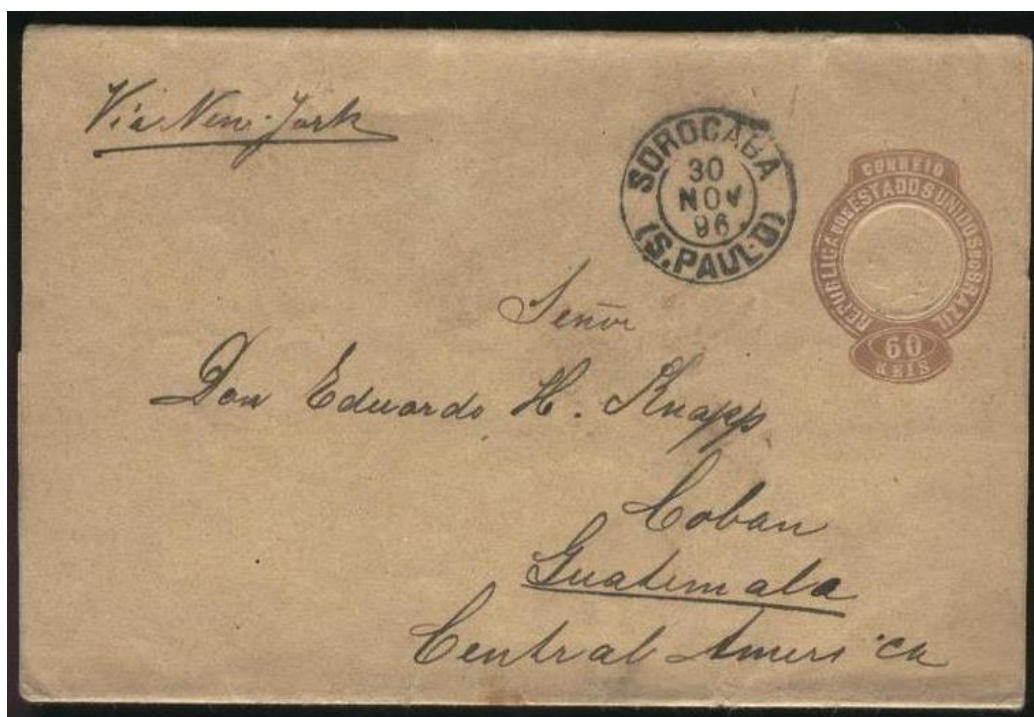 Via New-York
SOROCABA
30
NOV
96
(S. PAULO)
CORREIO
REPUBLICA DOS ESTADOS UNIDOS DO BRAZIL
60
REIS
Señor
Don Eduardo H. Knapp
Coban
Guatemala
Central America